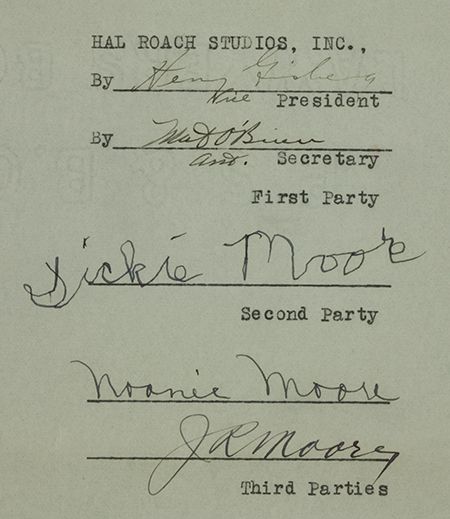 HAL ROACH STUDIOS, INC.,
By Henry Ginsberg
Vice President
By Mat O'Brien
Asst. Secretary
First Party
Dickie Moore
Second Party
Noonie Moore
J R Moore
Third Parties